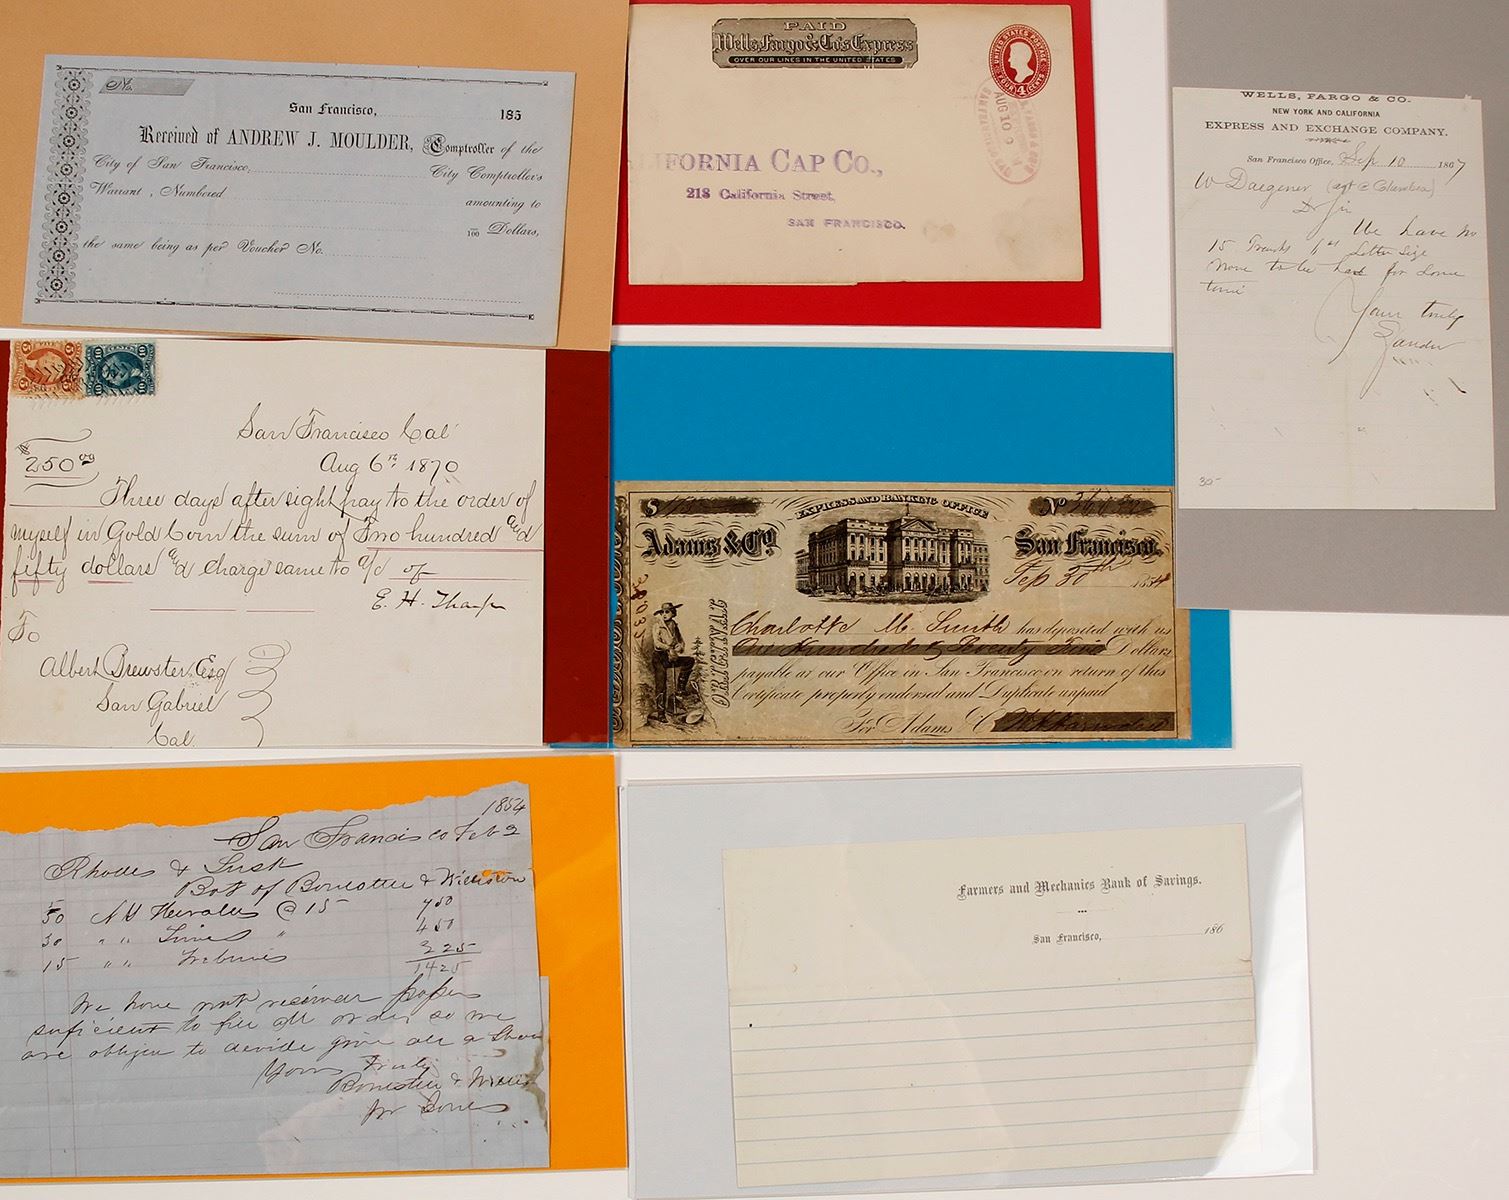 No.
San Francisco, 185
Received of ANDREW J. MOULDER, Comptroller of the
City of San Francisco, City Comptroller's
Warrant, Numbered amounting to
100 Dollars,
the same being as per Voucher No.
PAID
Wells, Fargo & Co's Express
OVER OUR LINES IN THE UNITED STATES
UNITED STATES POSTAGE
FOUR 4 CENTS
AUG 10
IFORNIA CAP CO.,
218 California Street,
SAN FRANCISCO.
WELLS, FARGO & CO.
NEW YORK AND CALIFORNIA
EXPRESS AND EXCHANGE COMPANY.
San Francisco Office, Sep 10 1867
W Daegener (agt @ Columbia)
D Sir
We have no
15 Letter Size
None to be had for some
time
Yours truly
30-
5 5
10 10
San Francisco Cal
Aug 6th 1870
$250 00/100
Three days after sight pay to the order of
myself in Gold Coin the sum of Two hundred and
fifty dollars and charge same to a/c of
E. H. Tharp
To
Albert Brewster Esq
San Gabriel
Cal.
EXPRESS AND BANKING OFFICE
$ 175 No.
Adams & Co. San Francisco,
Sep 30th 1854
ORIGINAL
Charlotte M. Smith has deposited with us
One Hundred & Seventy Five Dollars
payable at our Office in San Francisco on return of this
Certificate properly endorsed and Duplicate unpaid
For Adams & Co
1854
San Francisco Feb 2
Rhodes & Lusk
Bot of Bonestell & Williston
50 N Y Heralds @ 15 750
30 " " Times " 450
15 " " Tribunes 225
1425
We have not received papers
suficient to fill all orders so we
are obliged to devide give all a Share
Yours Truly
Bonestell & Will
pr Jones
Farmers and Mechanics Bank of Savings.
San Francisco, 186